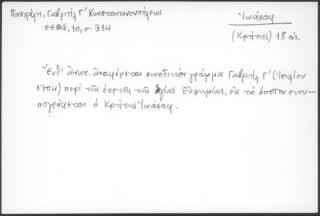 Πασχάλη, Γαβριήλ Γ' Κωνσταντινουπόλεως
ΕΕΒΣ, 10, σ. 314
Ἰωάσαφ
(Κρήτης) 18 αι.
Ἐνθ' ἀνωτ. ἀναφέρεται συνοδικόν γράμμα Γαβριήλ Γ' (Ἰουλίου
1704) περί τῆς ἑορτῆς τῆς ἁγίας Εὐφημίας, εἰς τό ὁποῖον συνυ-
πογράφεται ὁ Κρήτης Ἰωάσαφ.